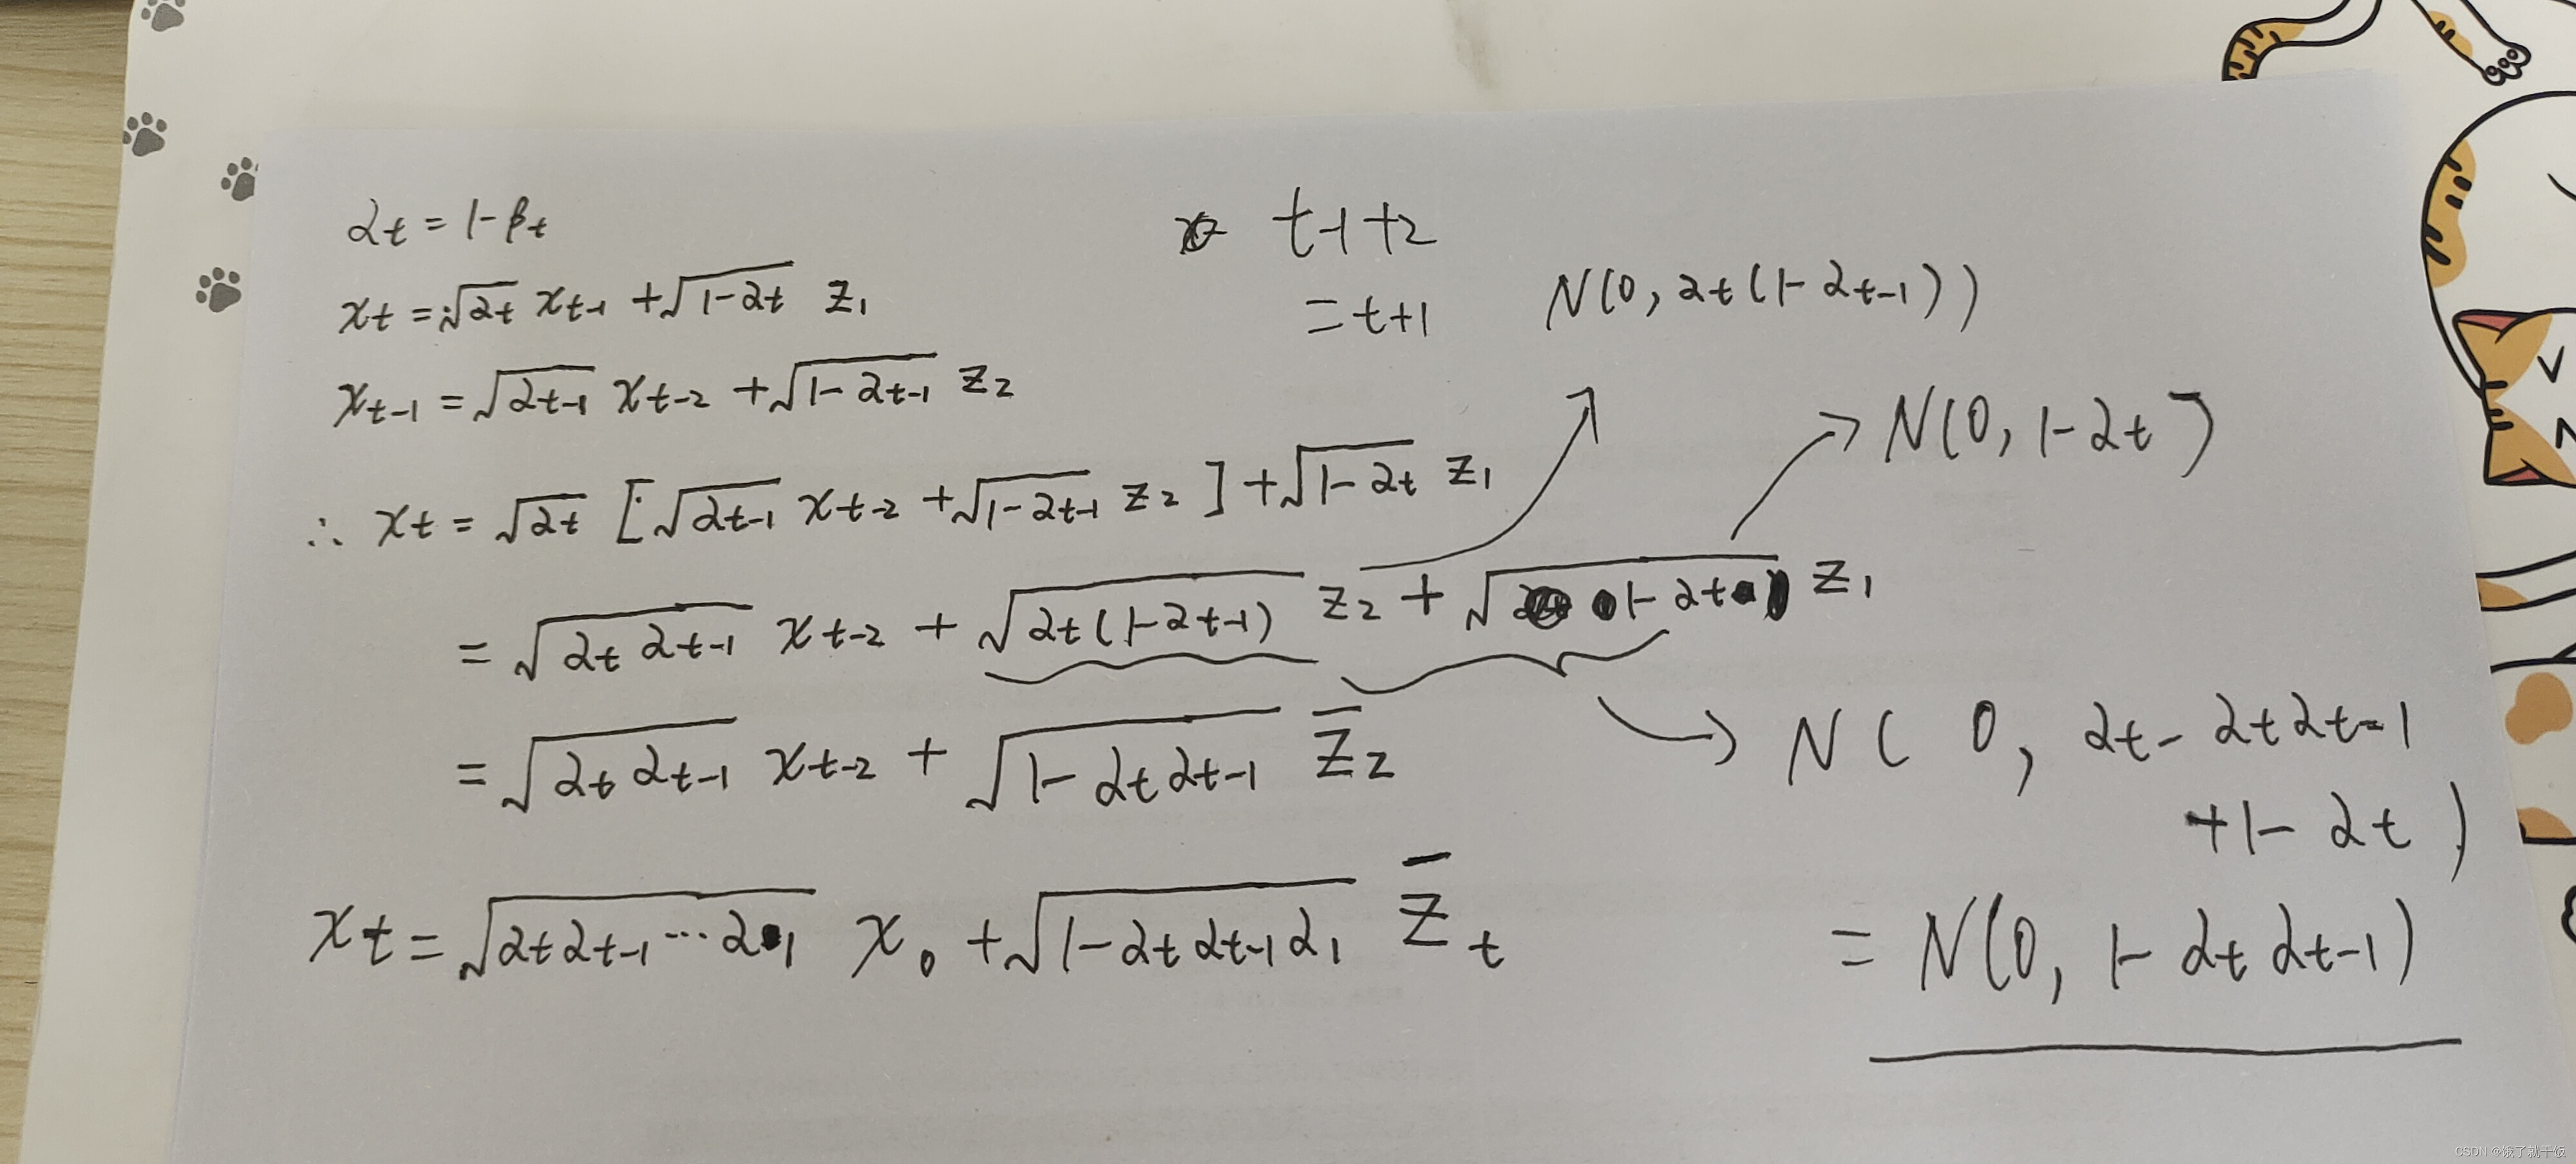 αt = 1-βt
xt = √αt xt-1 + √1-αt z1
xt-1 = √αt-1 xt-2 + √1-αt-1 z2
∴ xt = √αt [√αt-1 xt-2 + √1-αt-1 z2] + √1-αt z1
= √αt αt-1 xt-2 + √αt(1-αt-1) z2 + √1-αt z1
= √αt αt-1 xt-2 + √1-αt αt-1 z̅2
xt = √αt αt-1 ⋯ α1 x0 + √1-αt αt-1 α1 z̅t
t-1+2
= t+1
N(0, αt(1-αt-1))
N(0, 1-αt)
N( 0, αt - αt αt-1
+1- αt )
= N(0, 1- αt αt-1)
CSDN @饿了就干饭